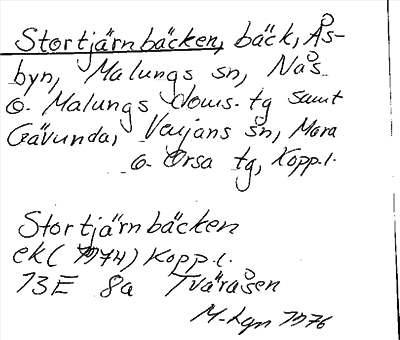 Stortjärnbäcken, bäck, Ås-
byn, Malungs sn, Nås
o. Malungs doms. tg samt
Gävunda, Venjans sn, Mora
o. Orsa tg, Kopp.l.
Stortjärnbäcken
ek (1974) Kopp.l.
13E 8a Tväråsen
M-Lgn 1976